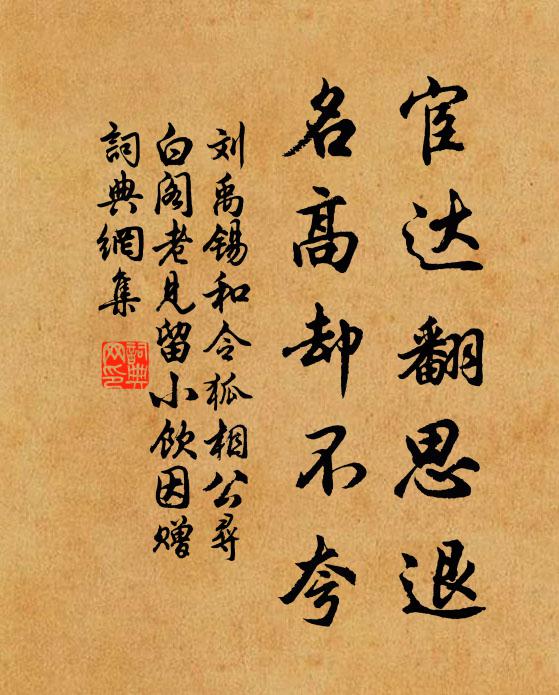 宦达翻思退
名高却不夸
刘禹锡和令狐相公寻
白阁老见留小饮因赠
詞典網集
詞典
网印